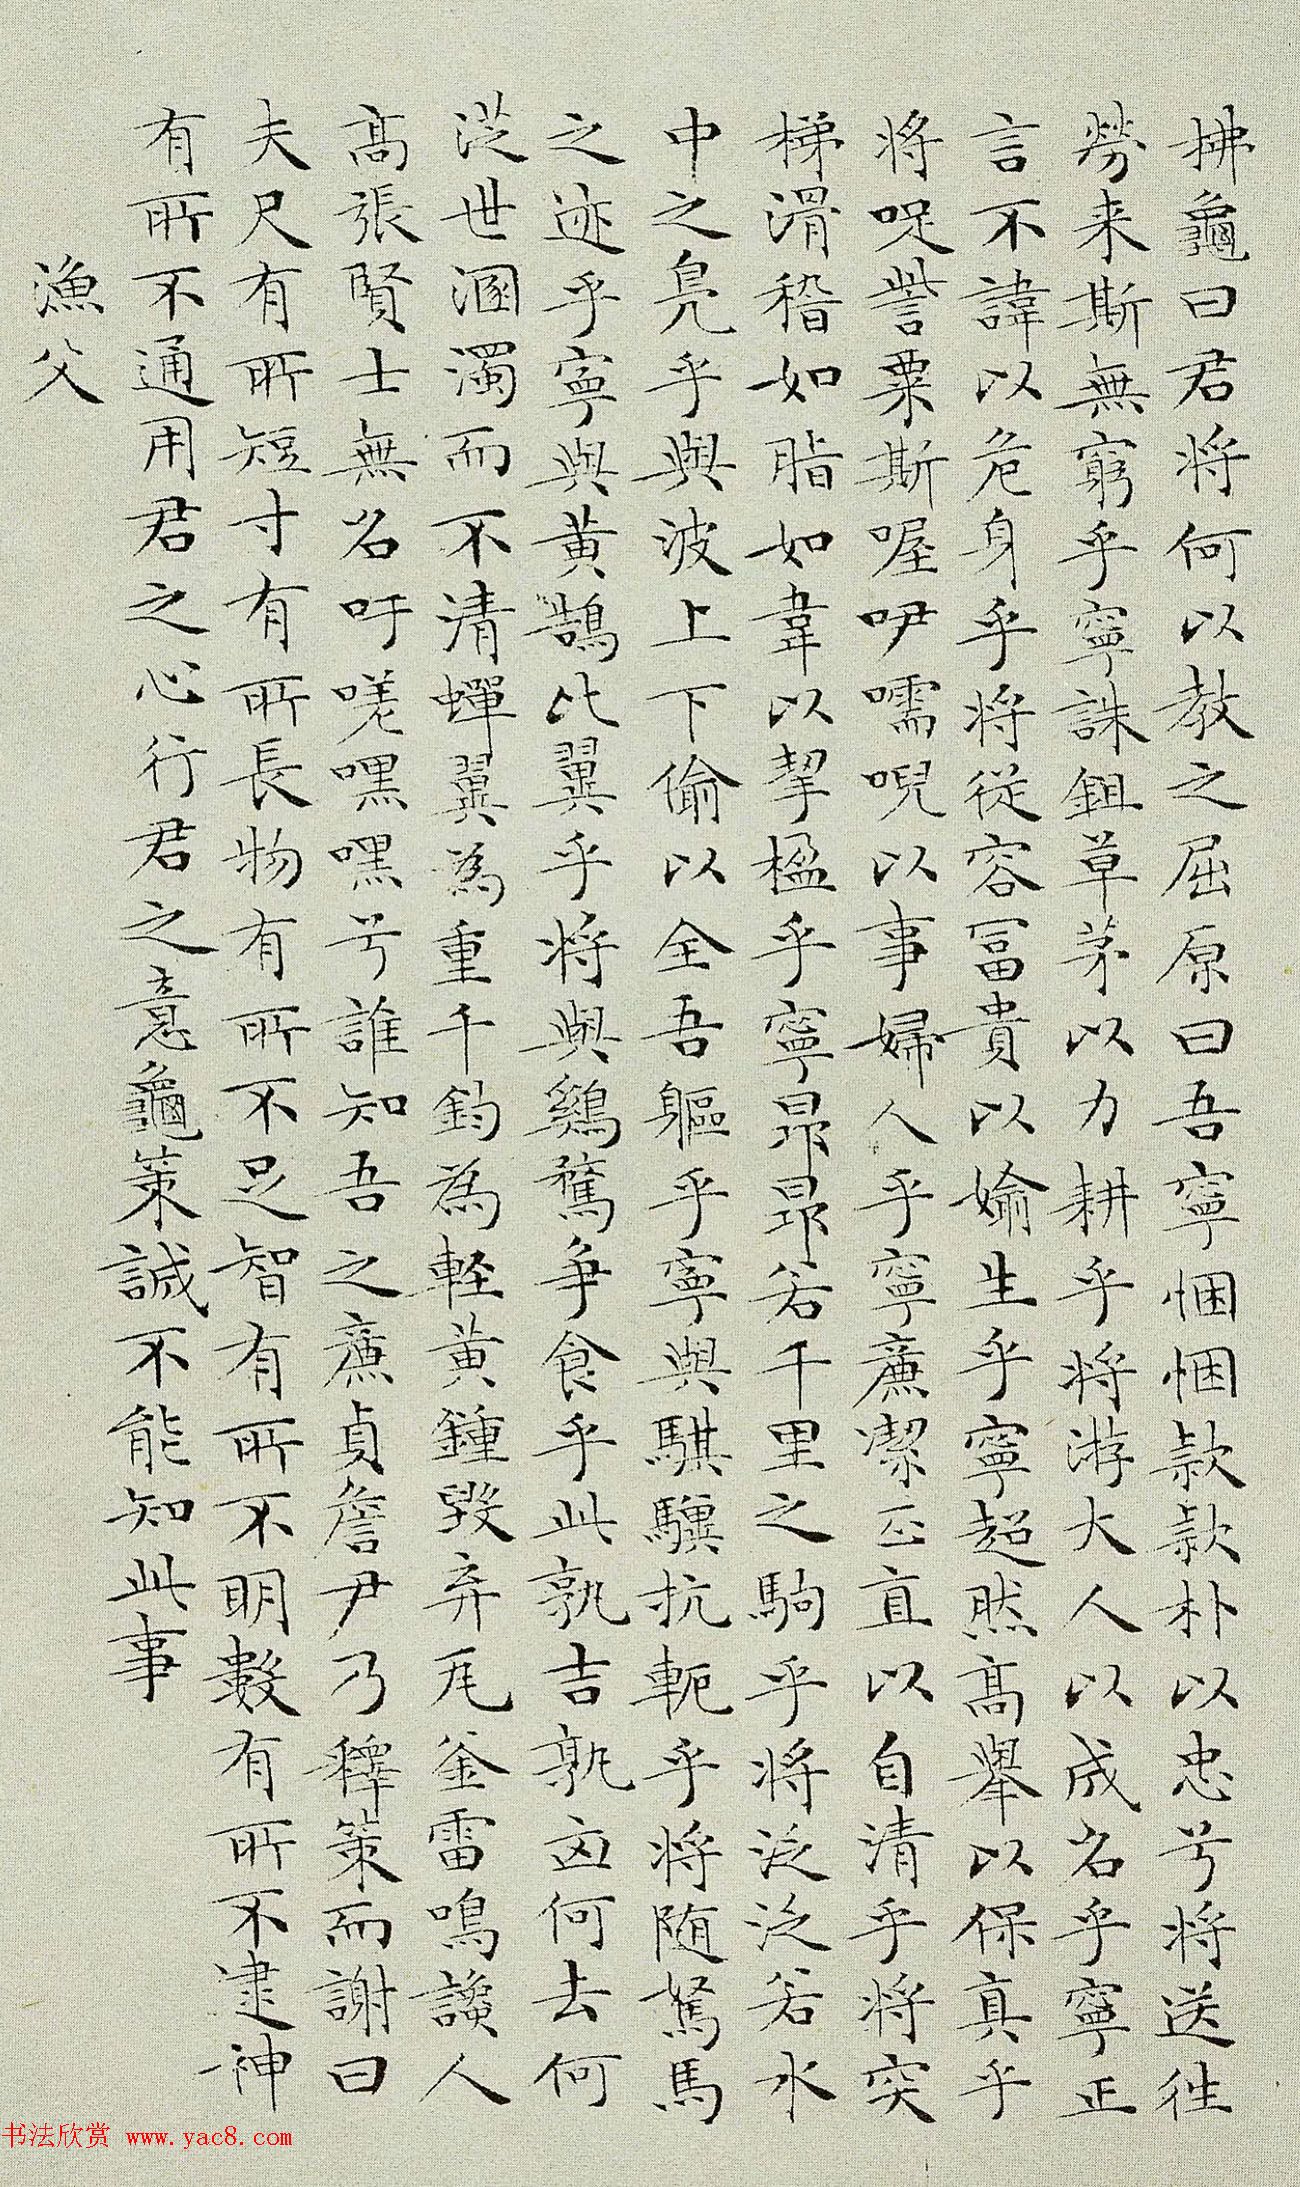 拂龜曰君將何以教之屈原曰吾寧悃悃款款朴以忠兮將送往
勞来斯無窮乎寧誅鉏草茅以力耕乎將游大人以成名乎寧正
言不諱以危身乎將從容冨貴以媮生乎寧超然髙舉以保真乎
將哫訾粟斯喔咿嚅唲以事婦人乎寧廉潔正直以自清乎將突
梯滑稽如脂如韋以挈楹乎寧昂昂若千里之駒乎將泛泛若水
中之鳬乎與波上下偷以全吾軀乎寧與騏驥抗軛乎將随駑馬
之迹乎寧與黄鵠比翼乎將與鷄鶩争食乎此孰吉孰凶何去何
從世溷濁而不清蟬翼為重千鈞為輕黄鍾毀弃瓦釜雷鳴讒人
髙張賢士無名吁嗟嘿嘿兮誰知吾之廉貞詹尹乃釋策而謝曰
夫尺有所短寸有所長物有所不足智有所不明數有所不逮神
有所不通用君之心行君之意龜策誠不能知此事
漁父
书法欣赏 www.yac8.com